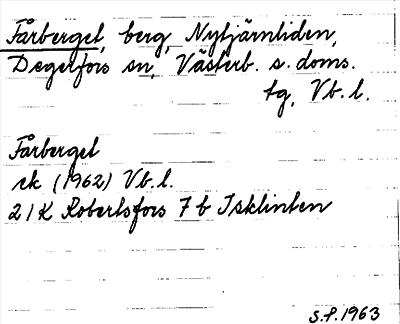 Fårberget, berg, Nytjärnliden,
Degerfors sn, Västerb. s. doms.
tg, Vb. l.
Fårberget
ek (1962) Vb. l.
21K Robertsfors 7b Isklinten
S.P. 1963